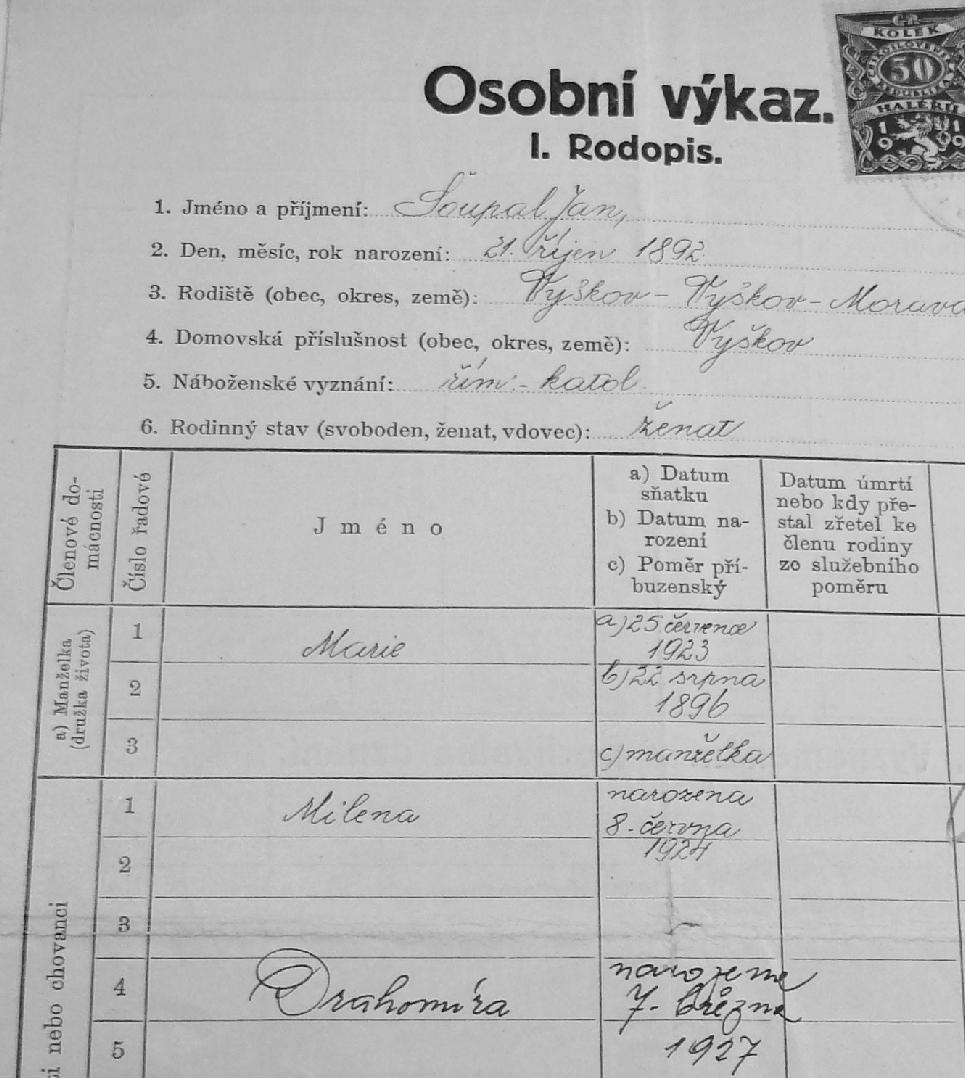 Č.R.
KOLEK
50
HALÉŘŮ
1919
Osobní výkaz.
I. Rodopis.
1. Jméno a příjmení: Šoupal Jan,
2. Den, měsíc, rok narození: 21. říjen 1892.
3. Rodiště (obec, okres, země): Vyškov - Vyškov - Morava
4. Domovská příslušnost (obec, okres, země): Vyškov
5. Náboženské vyznání: řím.- katol.
6. Rodinný stav (svoboden, ženat, vdovec): ženat
Členové do-
mácnosti
Číslo řadové
Jméno
a) Datum
sňatku
b) Datum na-
rození
c) Poměr pří-
buzenský
Datum úmrtí
nebo kdy pře-
stal zřetel ke
členu rodiny
zo služebního
poměru
a) Manželka
(družka života)
1 Marie a) 25 července
1923
2 b) 22 srpna
1896
3 c) manželka
1 Milena narozena
8. června
1924
2
3
4 Drahomíra narozena
7. března
5 1927
ti nebo chovanci